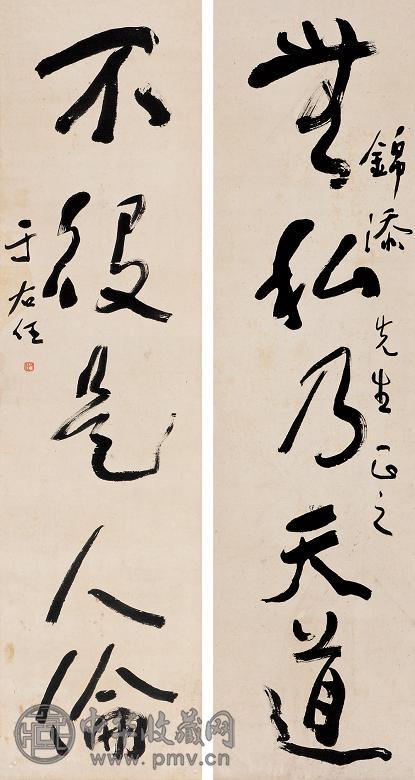 無私乃天道
錦添先生正之
不役是人倫
于右任
中华收藏网
www.pmv.cn